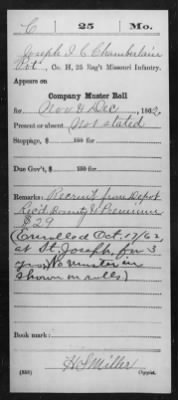 C 25 Mo.
Joseph I. C. Chamberlain
Pvt., Co. H, 25 Reg't Missouri Infantry.
Appears on
Company Muster Roll
for Nov & Dec, 1862.
Present or absent Not stated
Stoppage, $ 100 for
Due Gov't, $ 100 for
Remarks: Recruit from Depot
Rec'd Bounty & Premium
$29
(Enrolled Oct. 17/62,
at St. Joseph, for 3
yrs, No muster in
shown on rolls)
Book mark:
H S Miller
(358) Copyist.